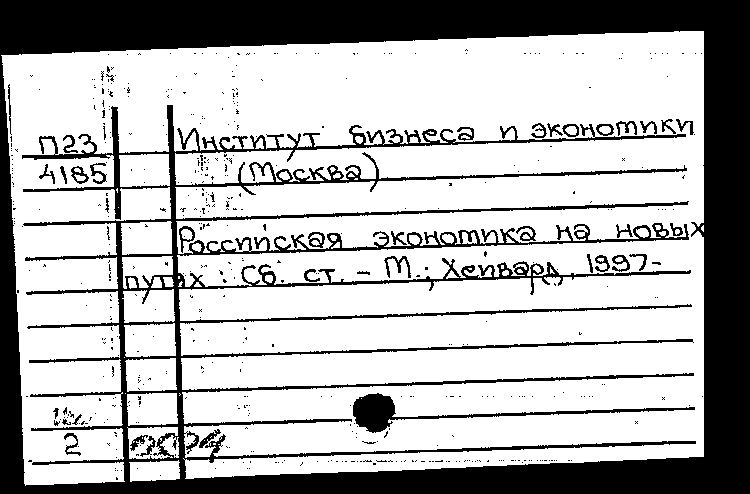 П23 Институт бизнеса и экономики
4185 (Москва)
Российская экономика на новых
путях : Сб. ст. – М.; Хейвард, 1997-
2